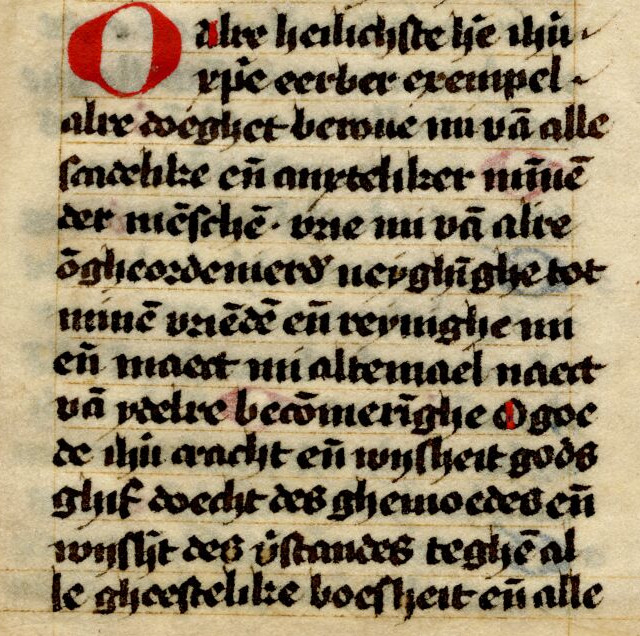 O alre heilichste hē ihū
xp̄e eerber exempel
alre doeghet beroue mi vā alle
scadelike eñ aurteliker minnē
der mēschē. vrie mi vā alre
ōgheordenierd' neyghīghe tot
minē vriēdē eñ reynighe mi
eñ maect mi altemael naect
vā ydelre becōmerīghe O goe
de ihū cracht eñ wijsheit gods
ghif doecht des ghemoedes eñ
wijsh't des v̄standes teghē al
le gheestelike boesheit eñ alle